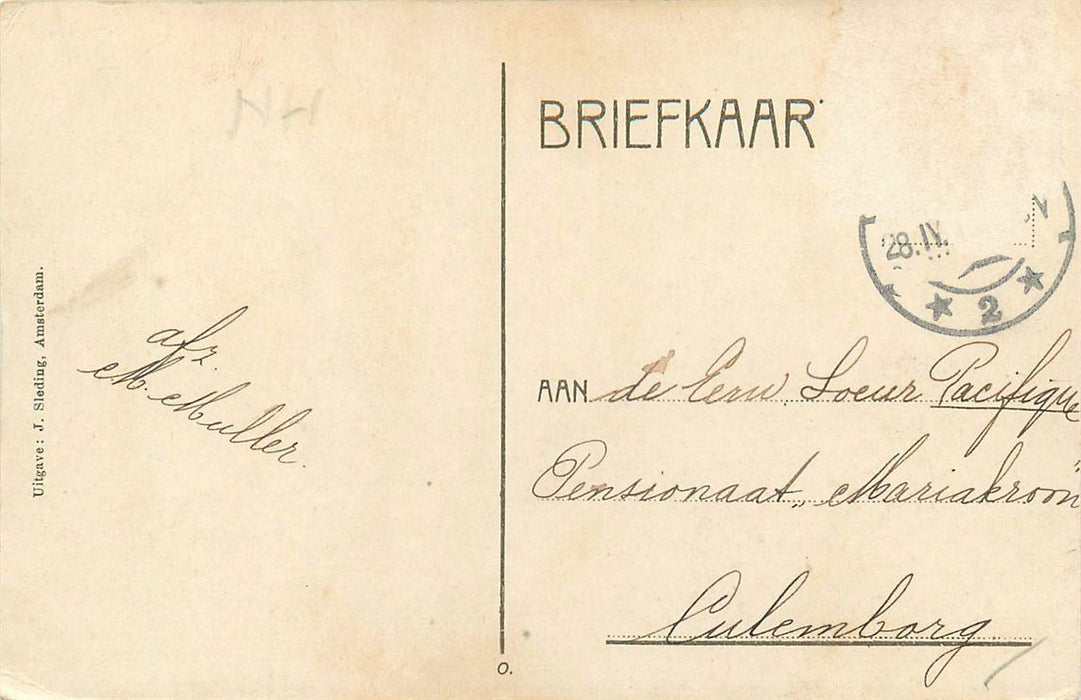 BRIEFKAAR
28.IV.
2
Uitgave: J. Sleding, Amsterdam.
afz.
M. Muller.
AAN de Eerw. Soeur Pacifique
Pensionaat „Mariakroon"
Culemborg.
O.